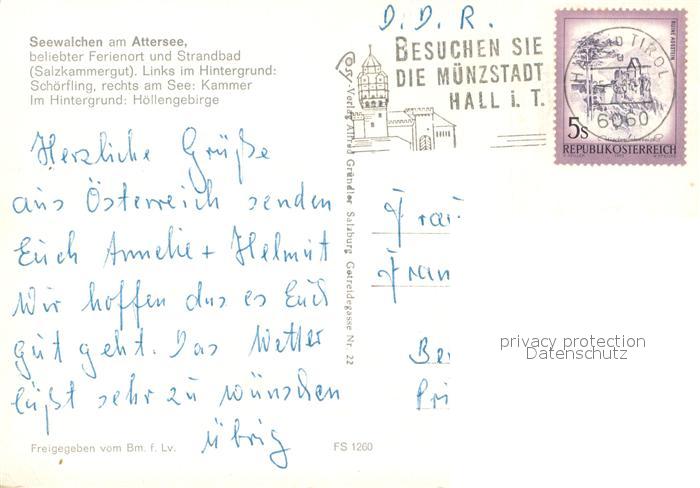 Seewalchen am Attersee,
beliebter Ferienort und Strandbad
(Salzkammergut). Links im Hintergrund:
Schörfling, rechts am See: Kammer
Im Hintergrund: Höllengebirge
D.D.R.
BESUCHEN SIE
DIE MÜNZSTADT
HALL i. T.
HALL IN TIROL
6060
RUINE AGGSTEIN
5s
REPUBLIK ÖSTERREICH
Herzliche Grüße
aus Österreich senden
Euch Annelie + Helmut
Wir hoffen das es Euch
gut geht. Das Wetter
läßt sehr zu wünschen
übrig
Cosy-Verlag Alfred Gründler Salzburg Getreidegasse Nr. 22
Frau
Fran
Be
Pri
privacy protection
Datenschutz
Freigegeben vom Bm. f. Lv.
FS 1260